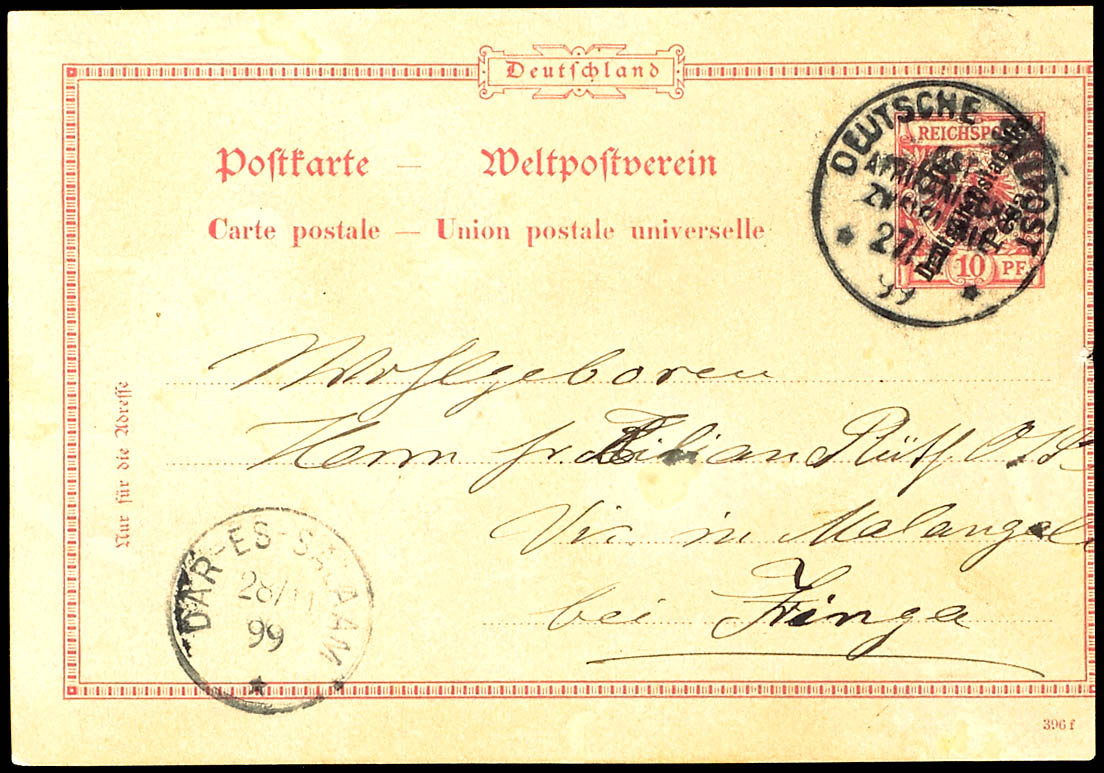 Deutschland
Postkarte — Weltpostverein
Carte postale — Union postale universelle
DEUTSCHE SEEPOST
OST-
AFRIKANISCHE
27/
99
REICHSPOST
10 PF
Nur für die Adresse
Wohlgeboren
Herrn fr. Kilian
Vic. in Malangali
bei Iringa
DAR-ES-SALAAM
28/11
99
396 f